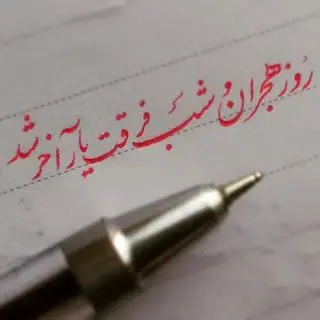 روز هجران و شب فرقت یار آخر شد